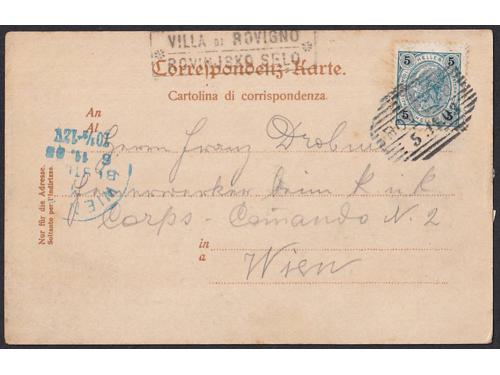 VILLA DI ROVIGNO
ROVINJSKO SELO
Correspondenz-Karte.
Cartolina di corrispondenza.
An
Al
Herrn Franz
beim K u K
Corps-Comando N. 2
in
a
Wien
Nur für die Adresse.
Soltanto per l'indirizzo.
HELLER
5
5
5
5
WIEN